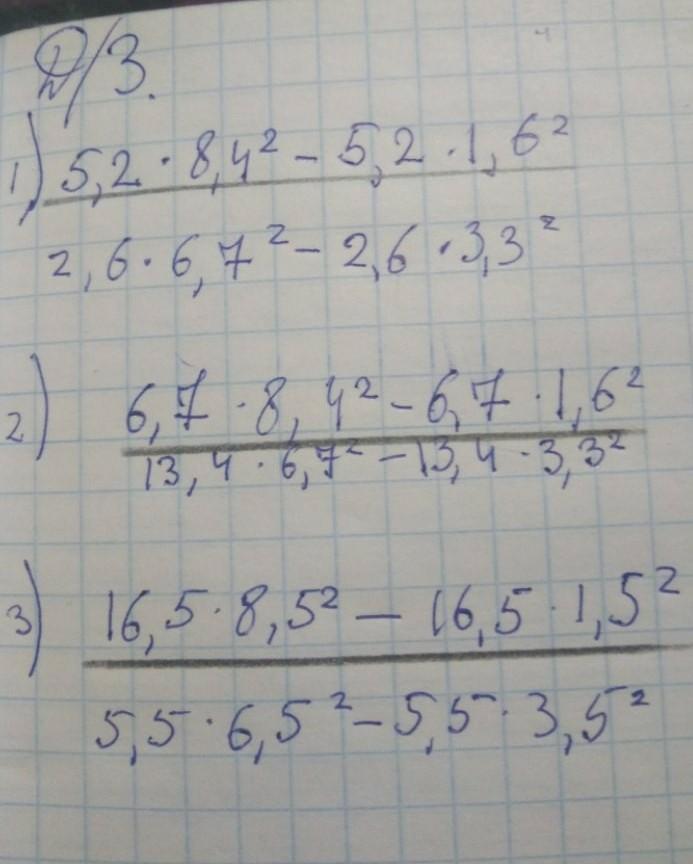 Д/З.
1) 5,2 · 8,4² - 5,2 · 1,6²
2,6 · 6,7² - 2,6 · 3,3²
2) 6,7 · 8,4² - 6,7 · 1,6²
13,4 · 6,7² - 13,4 · 3,3²
3) 16,5 · 8,5² - 16,5 · 1,5²
5,5 · 6,5² - 5,5 · 3,5²